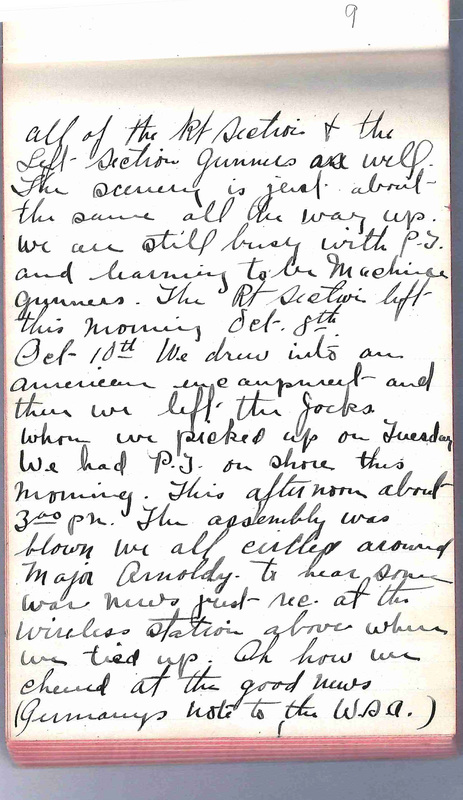 9
all of the Rt Section & the
Left section gunners as well.
The scenery is just about
the same all the way up.
We are still busy with P.T.
and learning to be Machine
gunners. The Rt Section left
this morning Oct. 8th
Oct 10th We drew into an
american encampment and
then we left the Jocks
whom we picked up on Tuesday
We had P.T. on shore this
morning. This afternoon about
3:00 pm. The assembly was
blown we all circled around
Major Arnoldy. to hear some
war news just rec. at the
wireless station above where
we tied up. Oh how we
cheered at the good news
(Germanys note to the U.S.A.)